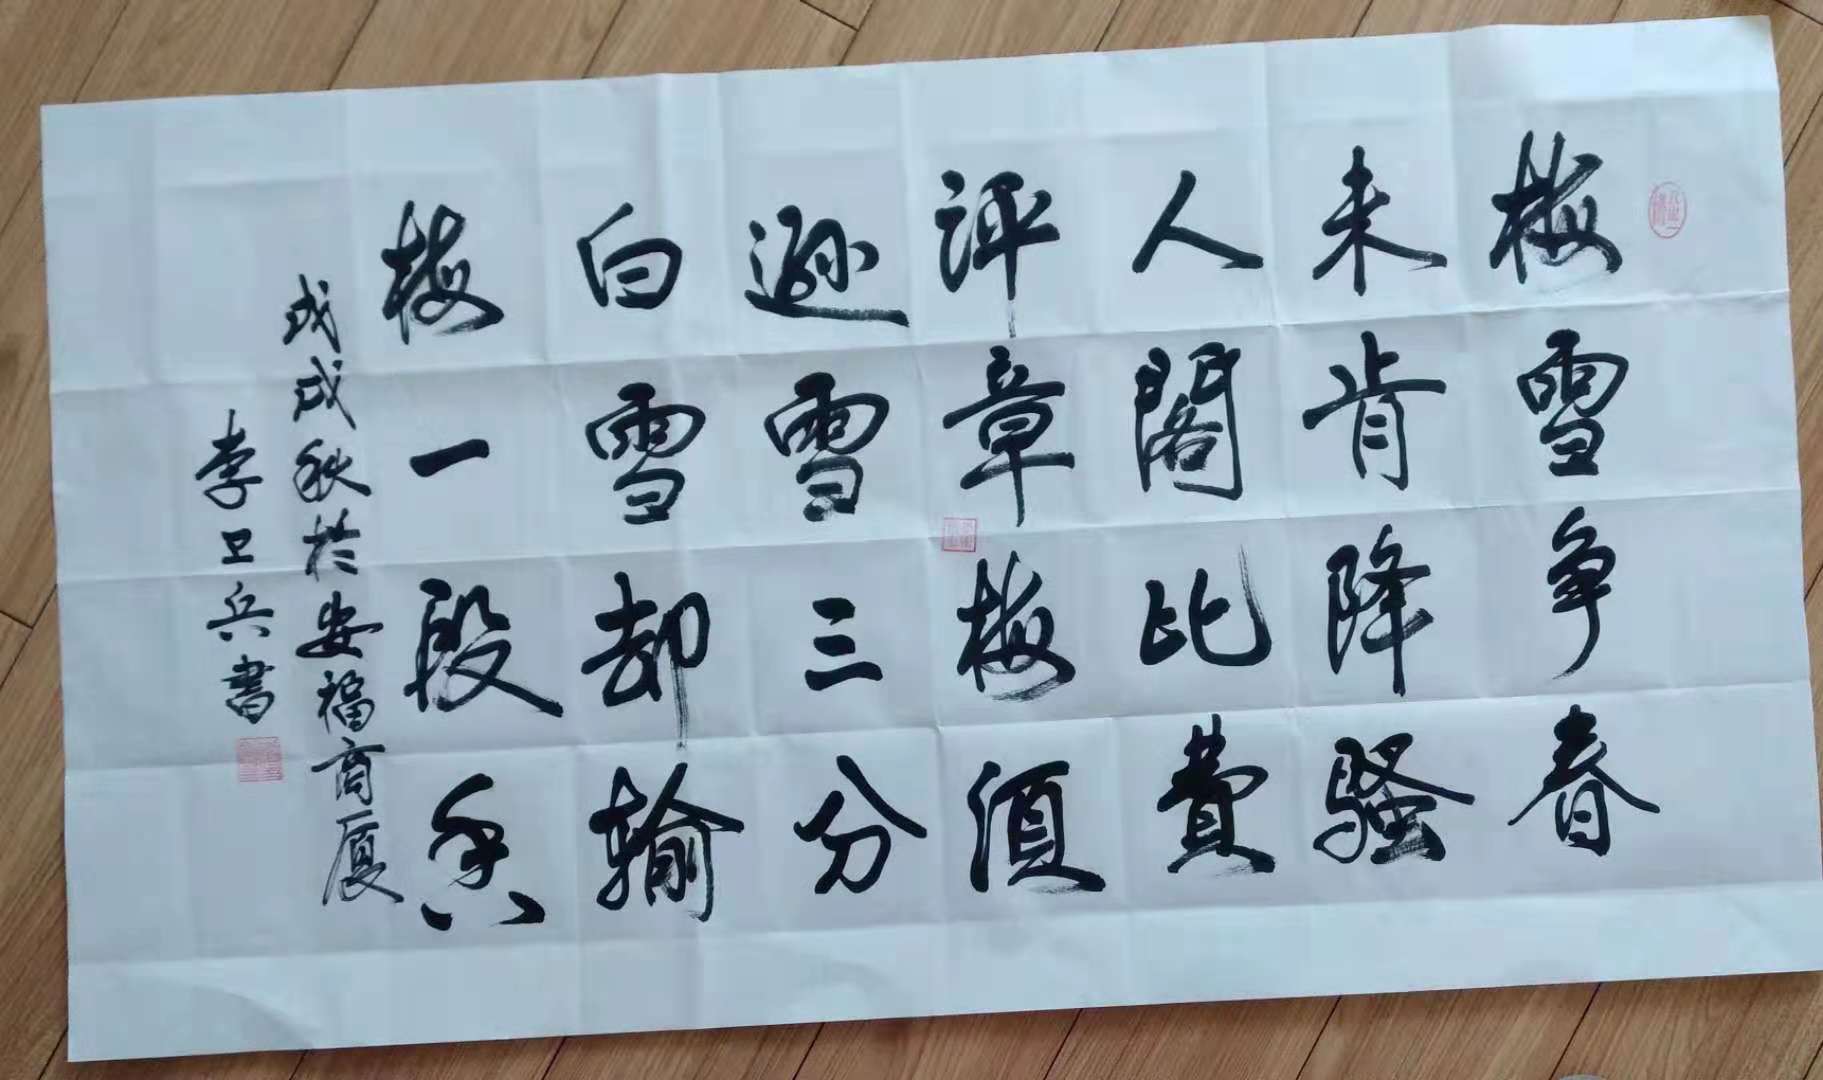 梅雪争春
未肯降騷
人閣比費
評章梅須
遜雪三分
白雪却輸
梅一段香
戊戌秋於安福商厦
李卫兵書